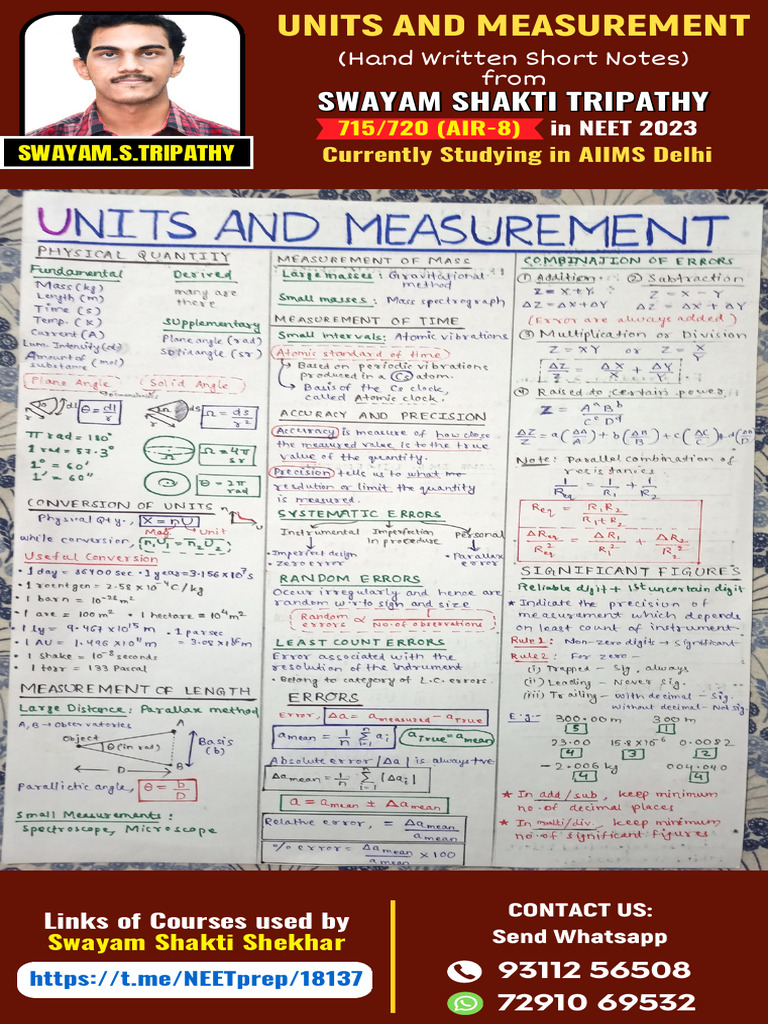 UNITS AND MEASUREMENT
(Hand Written Short Notes)
from
SWAYAM SHAKTI TRIPATHY
715/720 (AIR-8) in NEET 2023
Currently Studying in AIIMS Delhi
SWAYAM.S.TRIPATHY
UNITS AND MEASUREMENT
PHYSICAL QUANTITY
Fundamental
Mass (kg)
Length (m)
Time (s)
Temp. (K)
Current (A)
Lum. Intensity (cd)
Amount of
substance (mol)
Derived
many are
there
Supplementary
Plane angle (rad)
Solid angle (sr)
Plane Angle
Solid Angle
θ = dl/r
Ω = ds/r²
π rad = 180°
1 rad = 57.3°
1° = 60'
1' = 60"
Ω = 4π
sr
θ = 2π
rad
CONVERSION OF UNITS
Physical Qty., X = nU
Mag. Unit
while conversion, n₁U₁ = n₂U₂
Useful Conversion
• 1 day = 86400 sec • 1 year = 3.156×10⁷s
• 1 roentgen = 2.58 × 10⁻⁴ C/kg
• 1 barn = 10⁻²⁸ m²
• 1 are = 100 m² • 1 hectare = 10⁴ m²
• 1 ly = 9.467 × 10¹⁵ m
• 1 parsec
= 3.08 × 10¹⁶ m
• 1 AU = 1.496 × 10¹¹ m
• 1 Shake = 10⁻⁸ seconds
• 1 torr = 133 Pascal
MEASUREMENT OF LENGTH
Large Distance: Parallax method
A, B → Observatories
A
Object
θ (in rad)
Basis
(b)
D
B
Parallactic angle, θ = b/D
Small Measurements:
Spectroscope, Microscope
MEASUREMENT OF MASS
Large masses: Gravitational
method
Small masses: Mass spectrograph
MEASUREMENT OF TIME
Small intervals: Atomic vibrations
Atomic standard of time
Based on periodic vibrations
produced in a Cs atom.
Basis of the Cs clock,
called Atomic clock.
ACCURACY AND PRECISION
Accuracy is measure of how close
the measured value is to the true
value of the quantity.
Precision tells us to what
resolution or limit the quantity
is measured.
SYSTEMATIC ERRORS
Instrumental
Imperfection
in procedure
Personal
• Imperfect design
• Zero error
• Parallax
error
RANDOM ERRORS
Occur irregularly and hence are
random w.r.to sign and size
Random
errors ∝ 1/No. of observations
LEAST COUNT ERRORS
Error associated with the
resolution of the instrument
• Belong to category of L.C. errors.
ERRORS
Error, Δa = a measured − a True
a mean = 1/n Σ(i=1 to n) aᵢ
a True = a mean
Absolute error |Δa| is always +ve
Δa mean = 1/n Σ(i=1 to n) |Δaᵢ|
a = a mean ± Δa mean
Relative error, = Δa mean / a mean
% error = Δa mean / a mean × 100
COMBINATION OF ERRORS
① Addition
Z = X + Y
ΔZ = ΔX + ΔY
② Subtraction
Z = X − Y
ΔZ = ΔX + ΔY
(Error are always added)
③ Multiplication or Division
Z = XY or Z = X/Y
ΔZ/Z = ΔX/X + ΔY/Y
④ Raised to certain power
Z = AᵃBᵇ/CᶜDᵈ
ΔZ/Z = a(ΔA/A) + b(ΔB/B) + c(ΔC/C) + d(ΔD/D)
Note: Parallel combination of
resistances
1/R eq = 1/R₁ + 1/R₂
R eq = R₁R₂/R₁+R₂
ΔR eq/R² eq = ΔR₁/R₁² + ΔR₂/R₂²
SIGNIFICANT FIGURES
Reliable digit + 1st uncertain digit
★ Indicate the precision of
measurement which depends
on least count of instrument
Rule 1: Non-zero digits → significant
Rule 2: For zero −
(i) Trapped − Sig. always
(ii) Leading − Never sig.
(iii) Trailing − with decimal − Sig.
without decimal − Not sig
E.g:- 300.00 m 300 m
5 1
23.00 15.8×10⁻⁶ 0.0082
4 3 2
-2.006 kg 004.040
4 4
★ In add/sub, keep minimum
no. of decimal places
★ In multi/div., keep minimum
no. of significant figures
Links of Courses used by
Swayam Shakti Shekhar
https://t.me/NEETprep/18137
CONTACT US:
Send Whatsapp
93112 56508
72910 69532